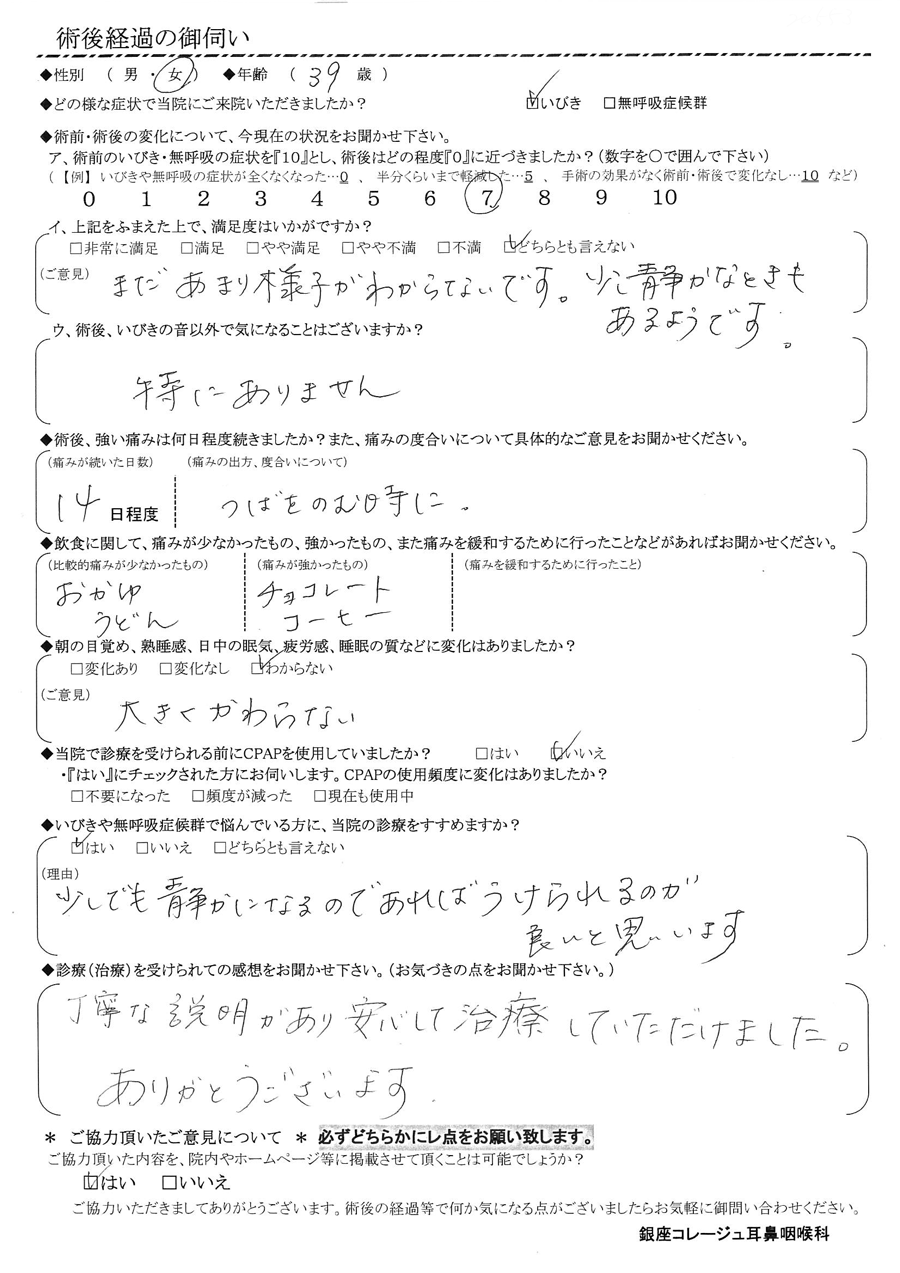 術後経過の御伺い
◆性別 （ 男 ・ 女 ） ◆年齢 （ 39 歳 ）
◆どの様な症状で当院にご来院いただきましたか？ ☑いびき □無呼吸症候群
◆術前・術後の変化について、今現在の状況をお聞かせ下さい。
ア、術前のいびき・無呼吸の症状を『10』とし、術後はどの程度『0』に近づきましたか？（数字を○で囲んで下さい）
（【例】 いびきや無呼吸の症状が全くなくなった…0 、 半分くらいまで軽減した…5 、 手術の効果がなく術前・術後で変化なし…10 など）
0 1 2 3 4 5 6 7 8 9 10
イ、上記をふまえた上で、満足度はいかがですか？
□非常に満足 □満足 □やや満足 □やや不満 □不満 ☑どちらとも言えない
（ご意見） まだあまり様子がわからないです。少し静かなときも
あるようです。
ウ、術後、いびきの音以外で気になることはございますか？
特にありません
◆術後、強い痛みは何日程度続きましたか？また、痛みの度合いについて具体的なご意見をお聞かせください。
（痛みが続いた日数） （痛みの出方、度合いについて）
14 日程度 つばをのむ時に。
◆飲食に関して、痛みが少なかったもの、強かったもの、また痛みを緩和するために行ったことなどがあればお聞かせください。
（比較的痛みが少なかったもの） （痛みが強かったもの） （痛みを緩和するために行ったこと）
おかゆ チョコレート
うどん コーヒー
◆朝の目覚め、熟睡感、日中の眠気、疲労感、睡眠の質などに変化はありましたか？
□変化あり □変化なし ☑わからない
（ご意見）
大きくかわらない
◆当院で診療を受けられる前にCPAPを使用していましたか？ □はい ☑いいえ
・『はい』にチェックされた方にお伺いします。CPAPの使用頻度に変化はありましたか？
□不要になった □頻度が減った □現在も使用中
◆いびきや無呼吸症候群で悩んでいる方に、当院の診療をすすめますか？
☑はい □いいえ □どちらとも言えない
（理由）
少しでも静かになるのであればうけられるのが
良いと思います
◆診療（治療）を受けられての感想をお聞かせ下さい。（お気づきの点をお聞かせ下さい。）
丁寧な説明があり安心して治療していただけました。
ありがとうございます
＊ ご協力頂いたご意見について ＊ 必ずどちらかにレ点をお願い致します。
ご協力頂いた内容を、院内やホームページ等に掲載させて頂くことは可能でしょうか？
☑はい □いいえ
ご協力いただきましてありがとうございます。術後の経過等で何か気になる点がございましたらお気軽に御問い合わせください。
銀座コレージュ耳鼻咽喉科